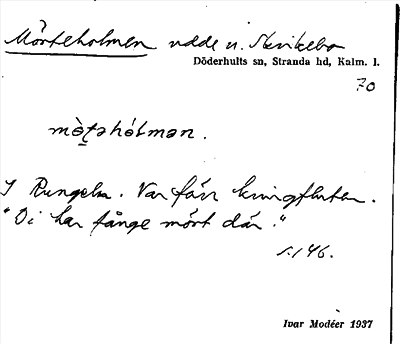 Mörteholmen udde v. Skrikebo
Döderhults sn, Stranda hd, Kalm. l.
70
mö̀ʈəhólmən.
I Rungeln. Var förr kringfluten.
"Di har fånge mört där."
s. 146.
Ivar Modéer 1937